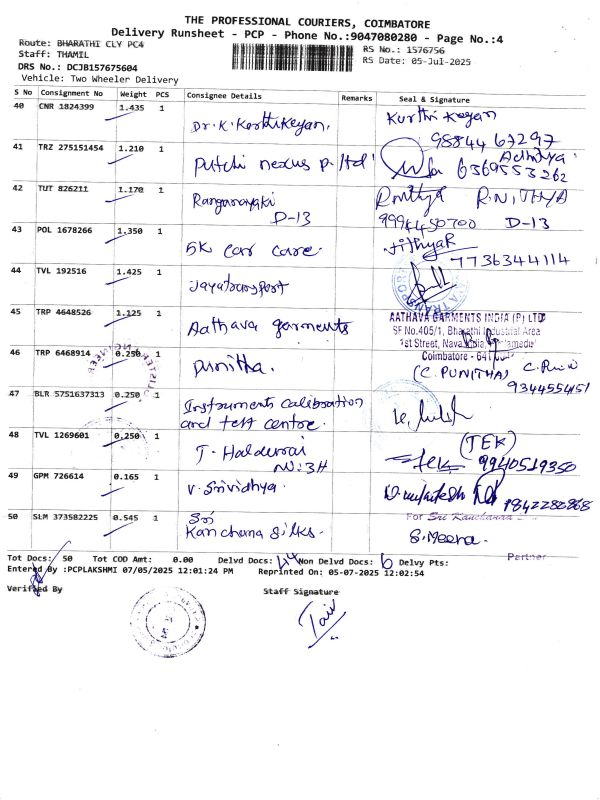 THE PROFESSIONAL COURIERS, COIMBATORE
Delivery Runsheet - PCP - Phone No.:9047080280 - Page No.:4
Route: BHARATHI CLY PC4
RS No.: 1576756
Staff: THAMIL
RS Date: 05-Jul-2025
DRS No.: DCJB157675604
Vehicle: Two Wheeler Delivery
S No Consignment No Weight PCS Consignee Details Remarks Seal & Signature
40 CNR 1824399 1.435 1 Dr. K. Karthikeyan. Kurthi Keyan
98844 67297
41 TRZ 275151454 1.210 1 Putchi nexus p. ltd Adhitya
6369553262
42 TUT 826211 1.170 1 Ranganayaki R.NITHYA
D-13 9994450700 D-13
43 POL 1678266 1.350 1 SK car care. Jithya R
7736344114
44 TVL 192516 1.425 1 Jayatransport
45 TRP 4648526 1.125 1 Aathava garments AATHAVA GARMENTS INDIA (P) LTD
SF No.405/1, Bharathi Industrial Area
1st Street, Nava
Coimbatore - 641
46 TRP 6468914 0.250 1 Punitha. (C. PUNITHA)
9344554151
47 BLR 5751637313 0.250 1 Instruments Calibration
and test centre.
48 TVL 1269601 0.250 1 T. Haldurai (TEK)
9940519350
49 GPM 726614 0.165 1 V. Srividhya. 9842282868
50 SLM 373582225 0.545 1 Sri For Sri Kanchanaa
Kanchana Silks. S. Meena.
Partner
Tot Docs: 50 Tot COD Amt: 0.00 Delvd Docs: 44 Non Delvd Docs: 6 Delvy Pts:
Entered By :PCPLAKSHMI 07/05/2025 12:01:24 PM Reprinted On: 05-07-2025 12:02:54
Verified By Staff Signature